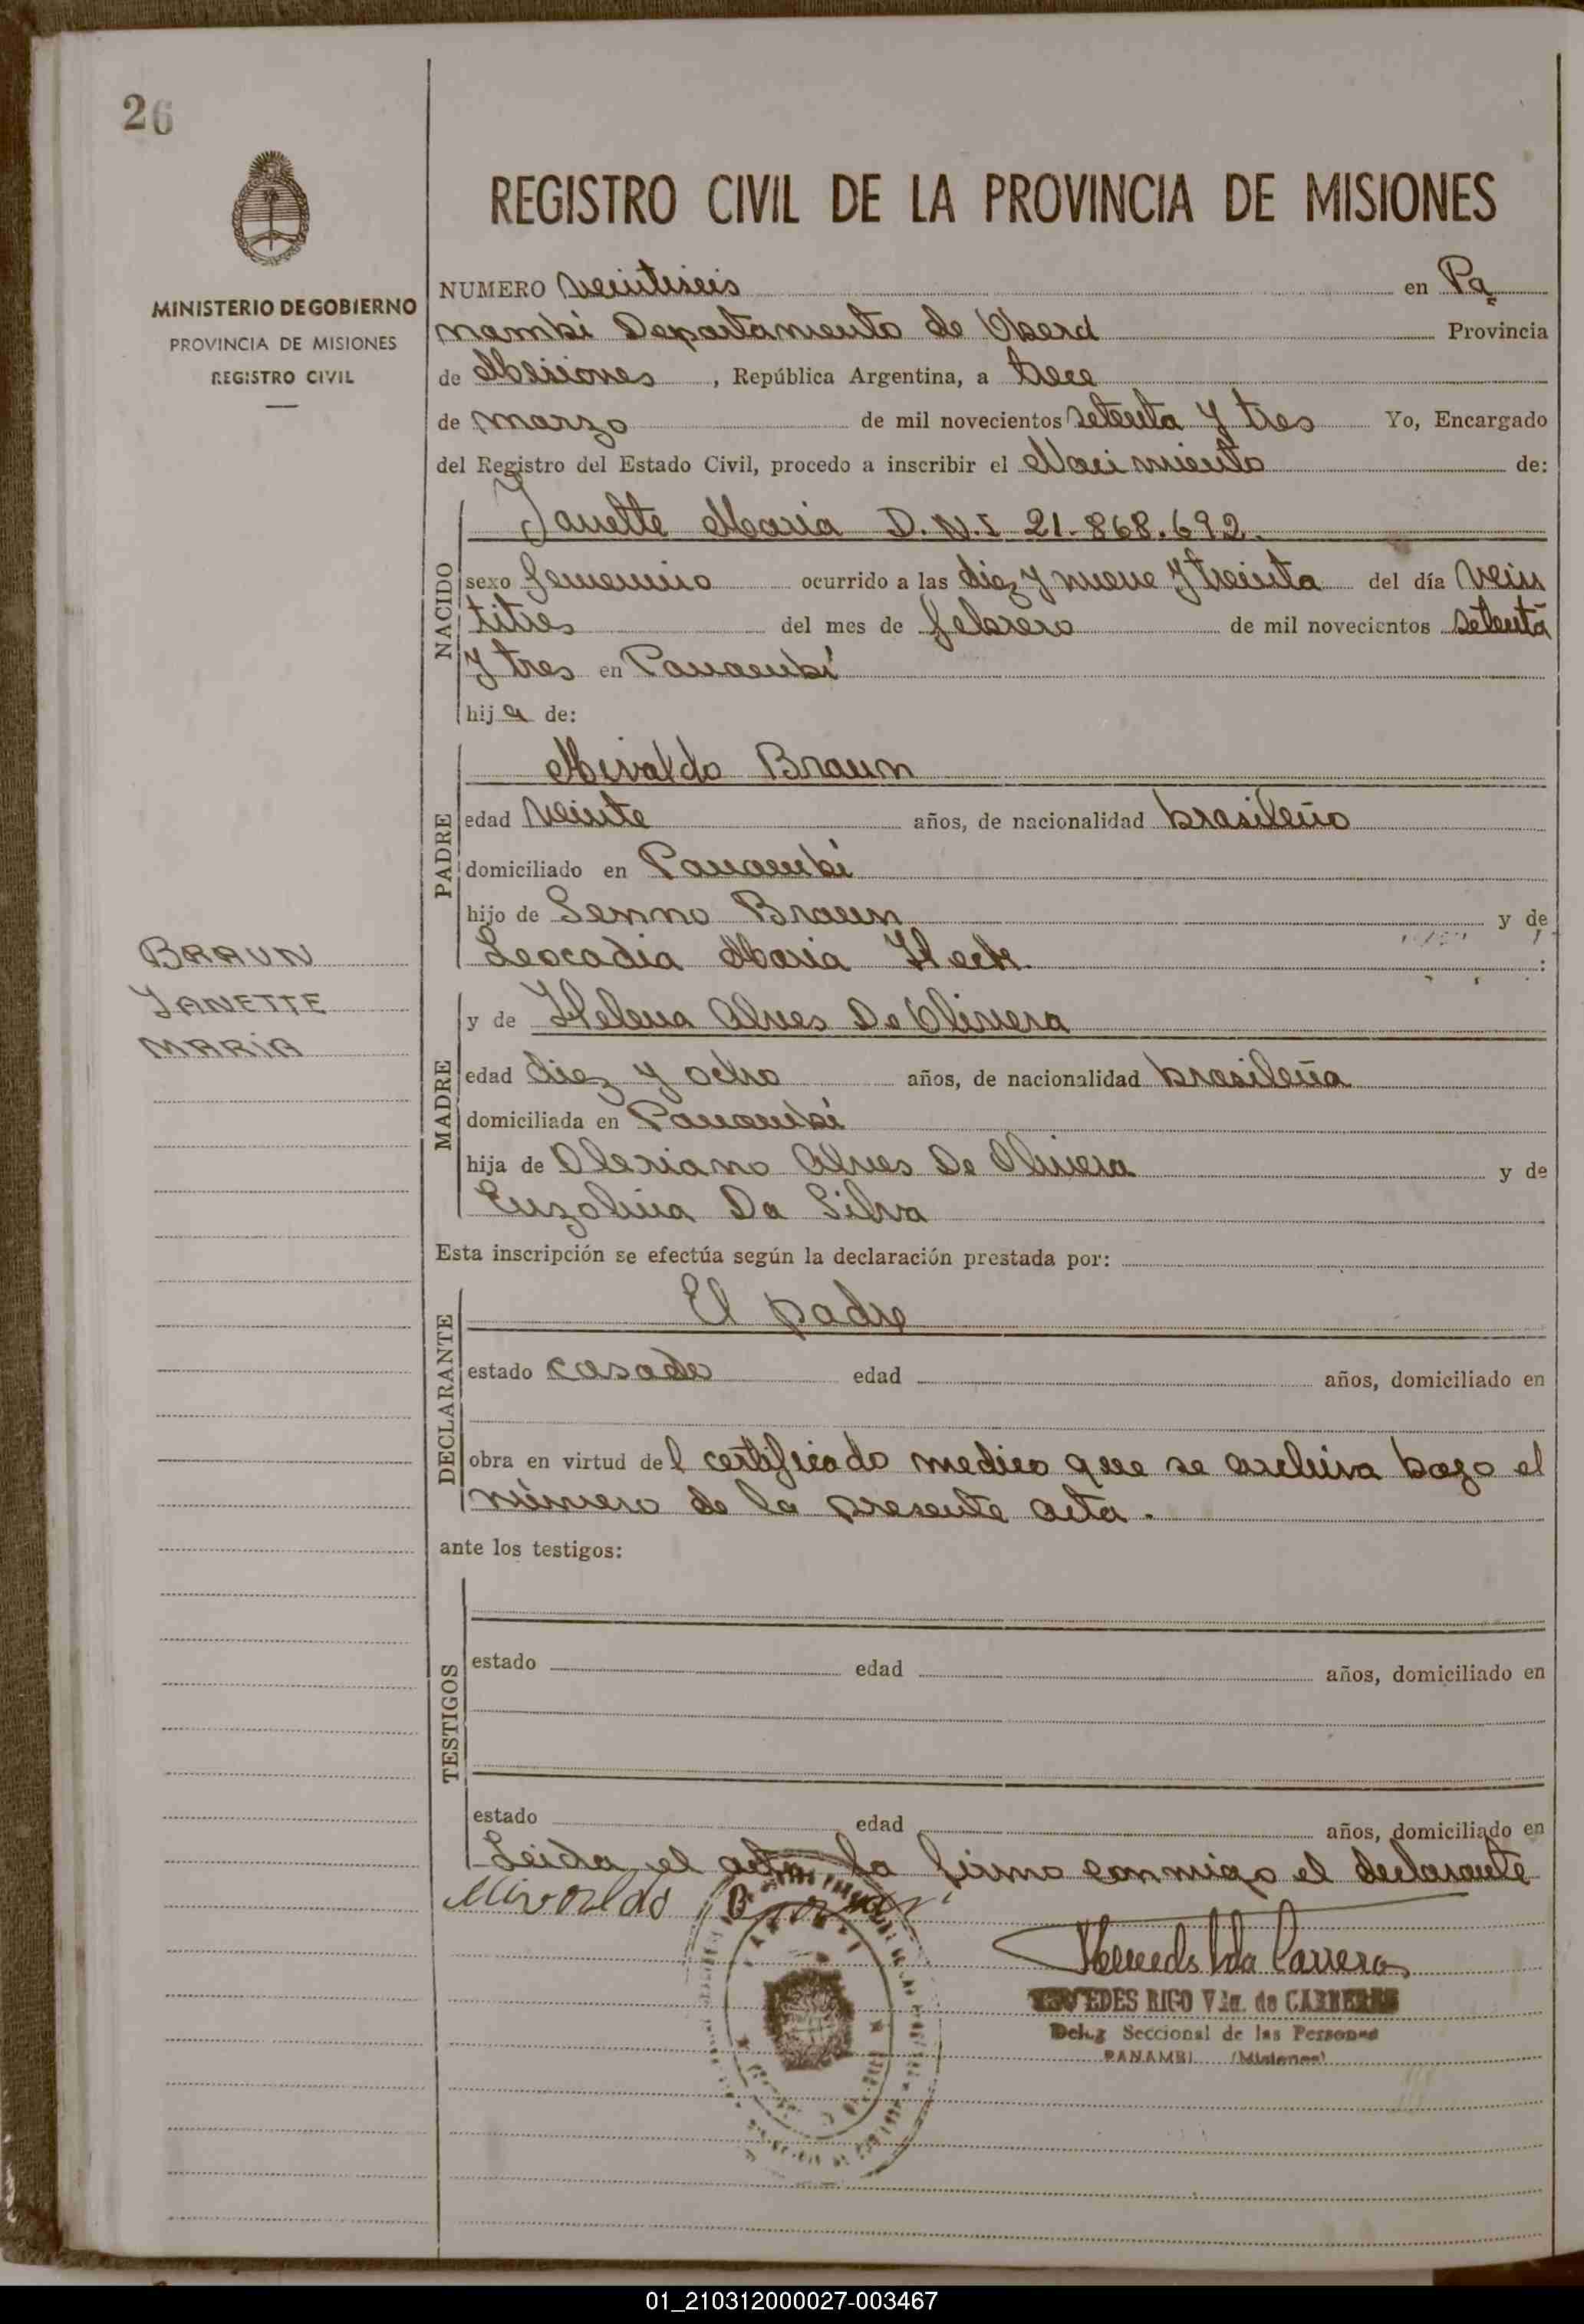 26
MINISTERIO DE GOBIERNO
PROVINCIA DE MISIONES
REGISTRO CIVIL
BRAUN
JANETTE
MARIA
REGISTRO CIVIL DE LA PROVINCIA DE MISIONES
NUMERO veintiseis en Pa
nambi Departamento de Oberá Provincia
de Misiones, República Argentina, a trece
de marzo de mil novecientos setenta y tres Yo, Encargado
del Registro del Estado Civil, procedo a inscribir el Nacimiento de:
NACIDO
Janette Maria D.N.I 21.868.692.
sexo femenino ocurrido a las diez y nueve y treinta del día vein
titres del mes de febrero de mil novecientos setenta
y tres en Panambí
hija de:
PADRE
Mivaldo Braun
edad veinte años, de nacionalidad brasileño
domiciliado en Panambí
hijo de Senno Braun y de
Leocadia Maria Heck :
MADRE
y de Helena Alves De Olivera
edad diez y ocho años, de nacionalidad brasileña
domiciliada en Panambí
hija de Oleriano Alves De Olivera y de
Euzolina Da Silva
Esta inscripción se efectúa según la declaración prestada por:
DECLARANTE
El padre
estado casado edad años, domiciliado en
obra en virtud del certificado medico que se archiva bajo el
número de la presente acta.
ante los testigos:
TESTIGOS
estado edad años, domiciliado en
estado edad años, domiciliado en
Leida el acta la firma conmigo el declarante
Mivaldo Braun
MERCEDES RICO Vda. de CARRERAS
Deleg Seccional de las Personas
PANAMBI (Misiones)
01_210312000027-003467